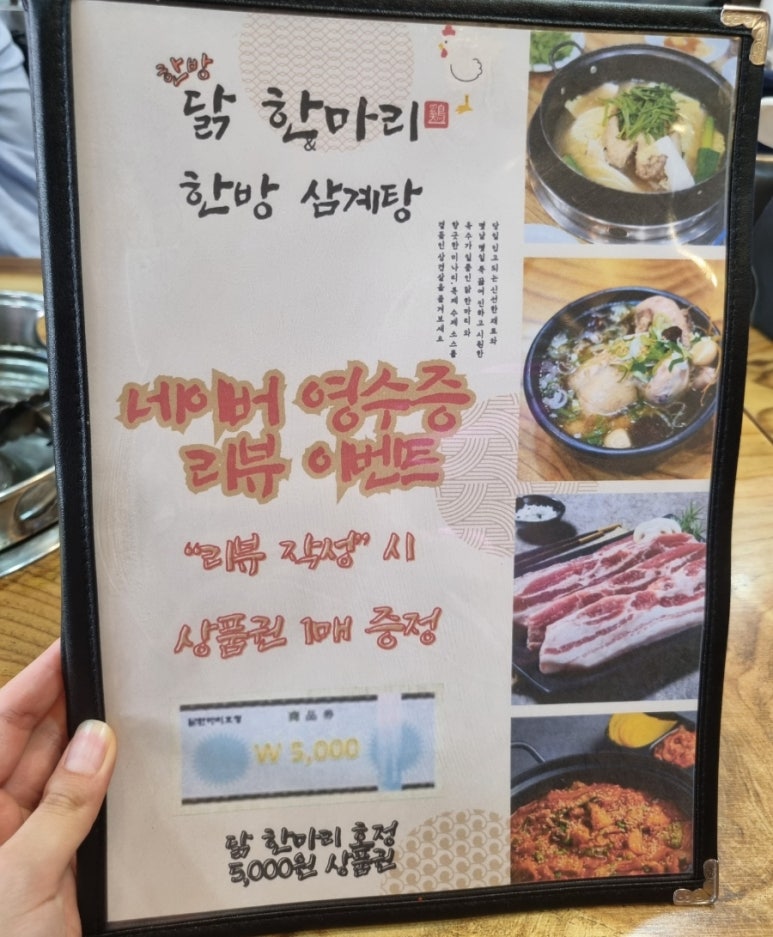 한방
닭 한마리
&
한방 삼계탕
당일 입고되는 신선한 재료와
매일 푹 끓여 진하고 시원한
육수가 일품인 닭 한마리와
향긋한 미나리, 특제 수제 소스를
즐겨보세요
네이버 영수증
리뷰 이벤트
“리뷰 작성” 시
상품권 1매 증정
商品券
₩ 5,000
닭 한마리 호정
5,000원 상품권